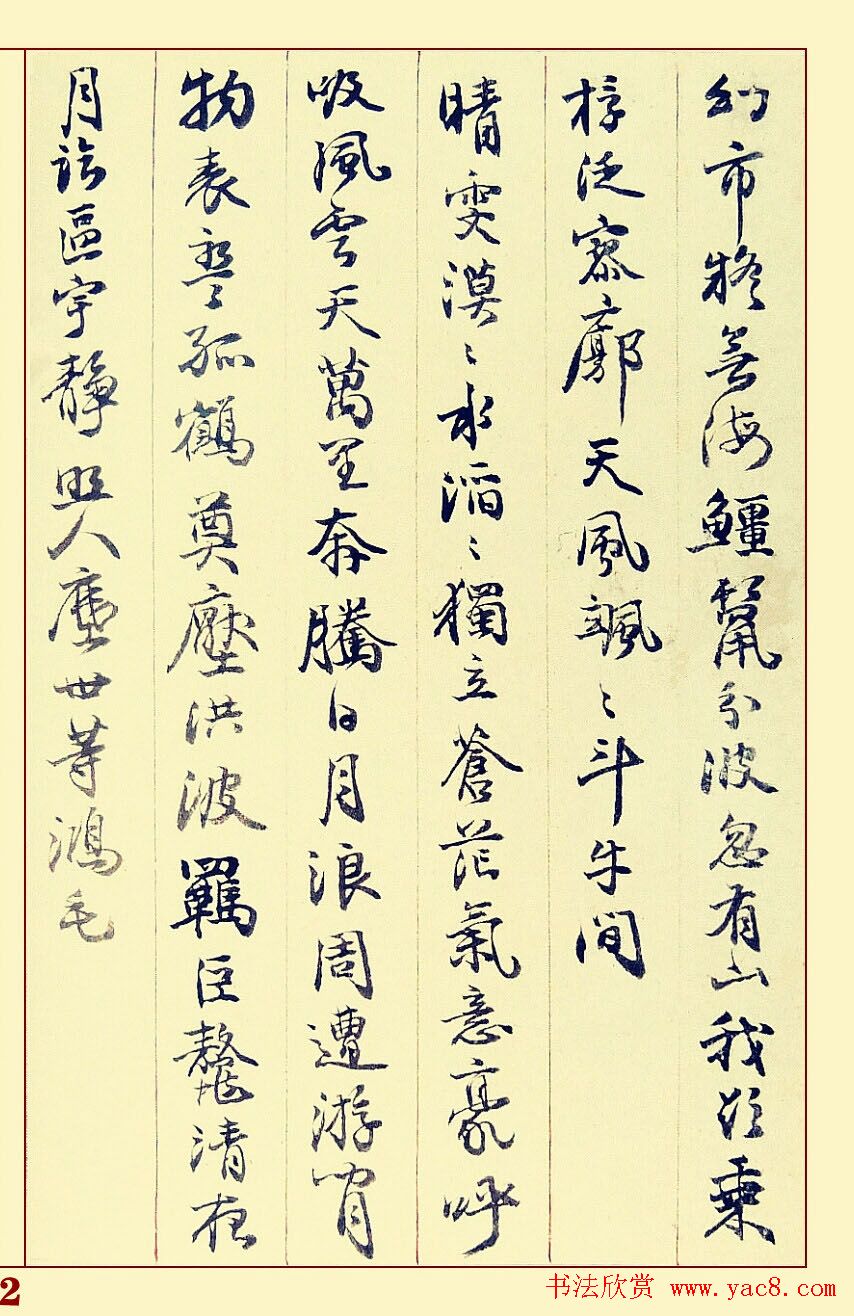 幻市疑無海䲔鬣分波忽有山我欲乘
桴泛寥廓天風颯〻斗牛間
晴雯漠〻水滔〻獨立蒼茫氣意豪呼
吸風雲天萬里奔騰日月浪周遭游閒
物表孤鶴奠壓洪波羈巨鼇清夜
月區宇靜照人塵世等鴻毛
2
书法欣赏 www.yac8.com